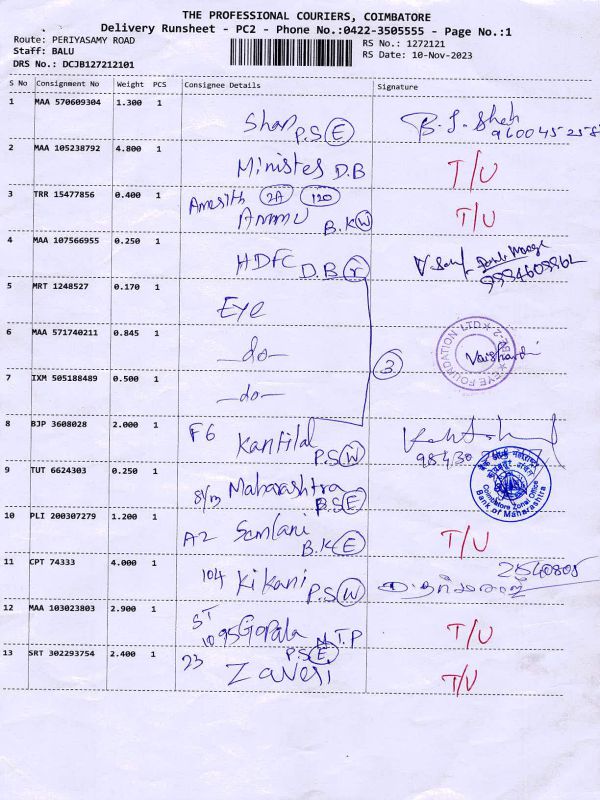 THE PROFESSIONAL COURIERS, COIMBATORE
Delivery Runsheet - PC2 - Phone No.:0422-3505555 - Page No.:1
Route: PERIYASAMY ROAD
RS No.: 1272121
Staff: BALU
RS Date: 10-Nov-2023
DRS No.: DCJB127212101
S No Consignment No Weight PCS Consignee Details Signature
1 MAA 570609304 1.300 1
P.S E
2 MAA 105238792 4.800 1
Ministes D.B T/U
3 TRR 15477856 0.400 1
2A 120
Ammu B.K W T/U
4 MAA 107566955 0.250 1
HDFC D.B r
5 MRT 1248527 0.170 1
Eye
6 MAA 571740211 0.845 1
-do-
EYE FOUNDATION LTD
3
7 IXM 505188489 0.500 1
-do-
8 BJP 3608028 2.000 1
F6 Kantilal P.S W
98430
9 TUT 6624303 0.250 1
Maharashtra P.S E
Coimbatore Zonal Office
Bank of Maharashtra
10 PLI 200307279 1.200 1
A2 Samlani B.K E T/U
11 CPT 74333 4.000 1
104 Kikani P.S W
2540805
12 MAA 103023803 2.900 1
ST 1095 Gopala N.T.P T/U
13 SRT 302293754 2.400 1
P.S E
23 Zaveri T/U